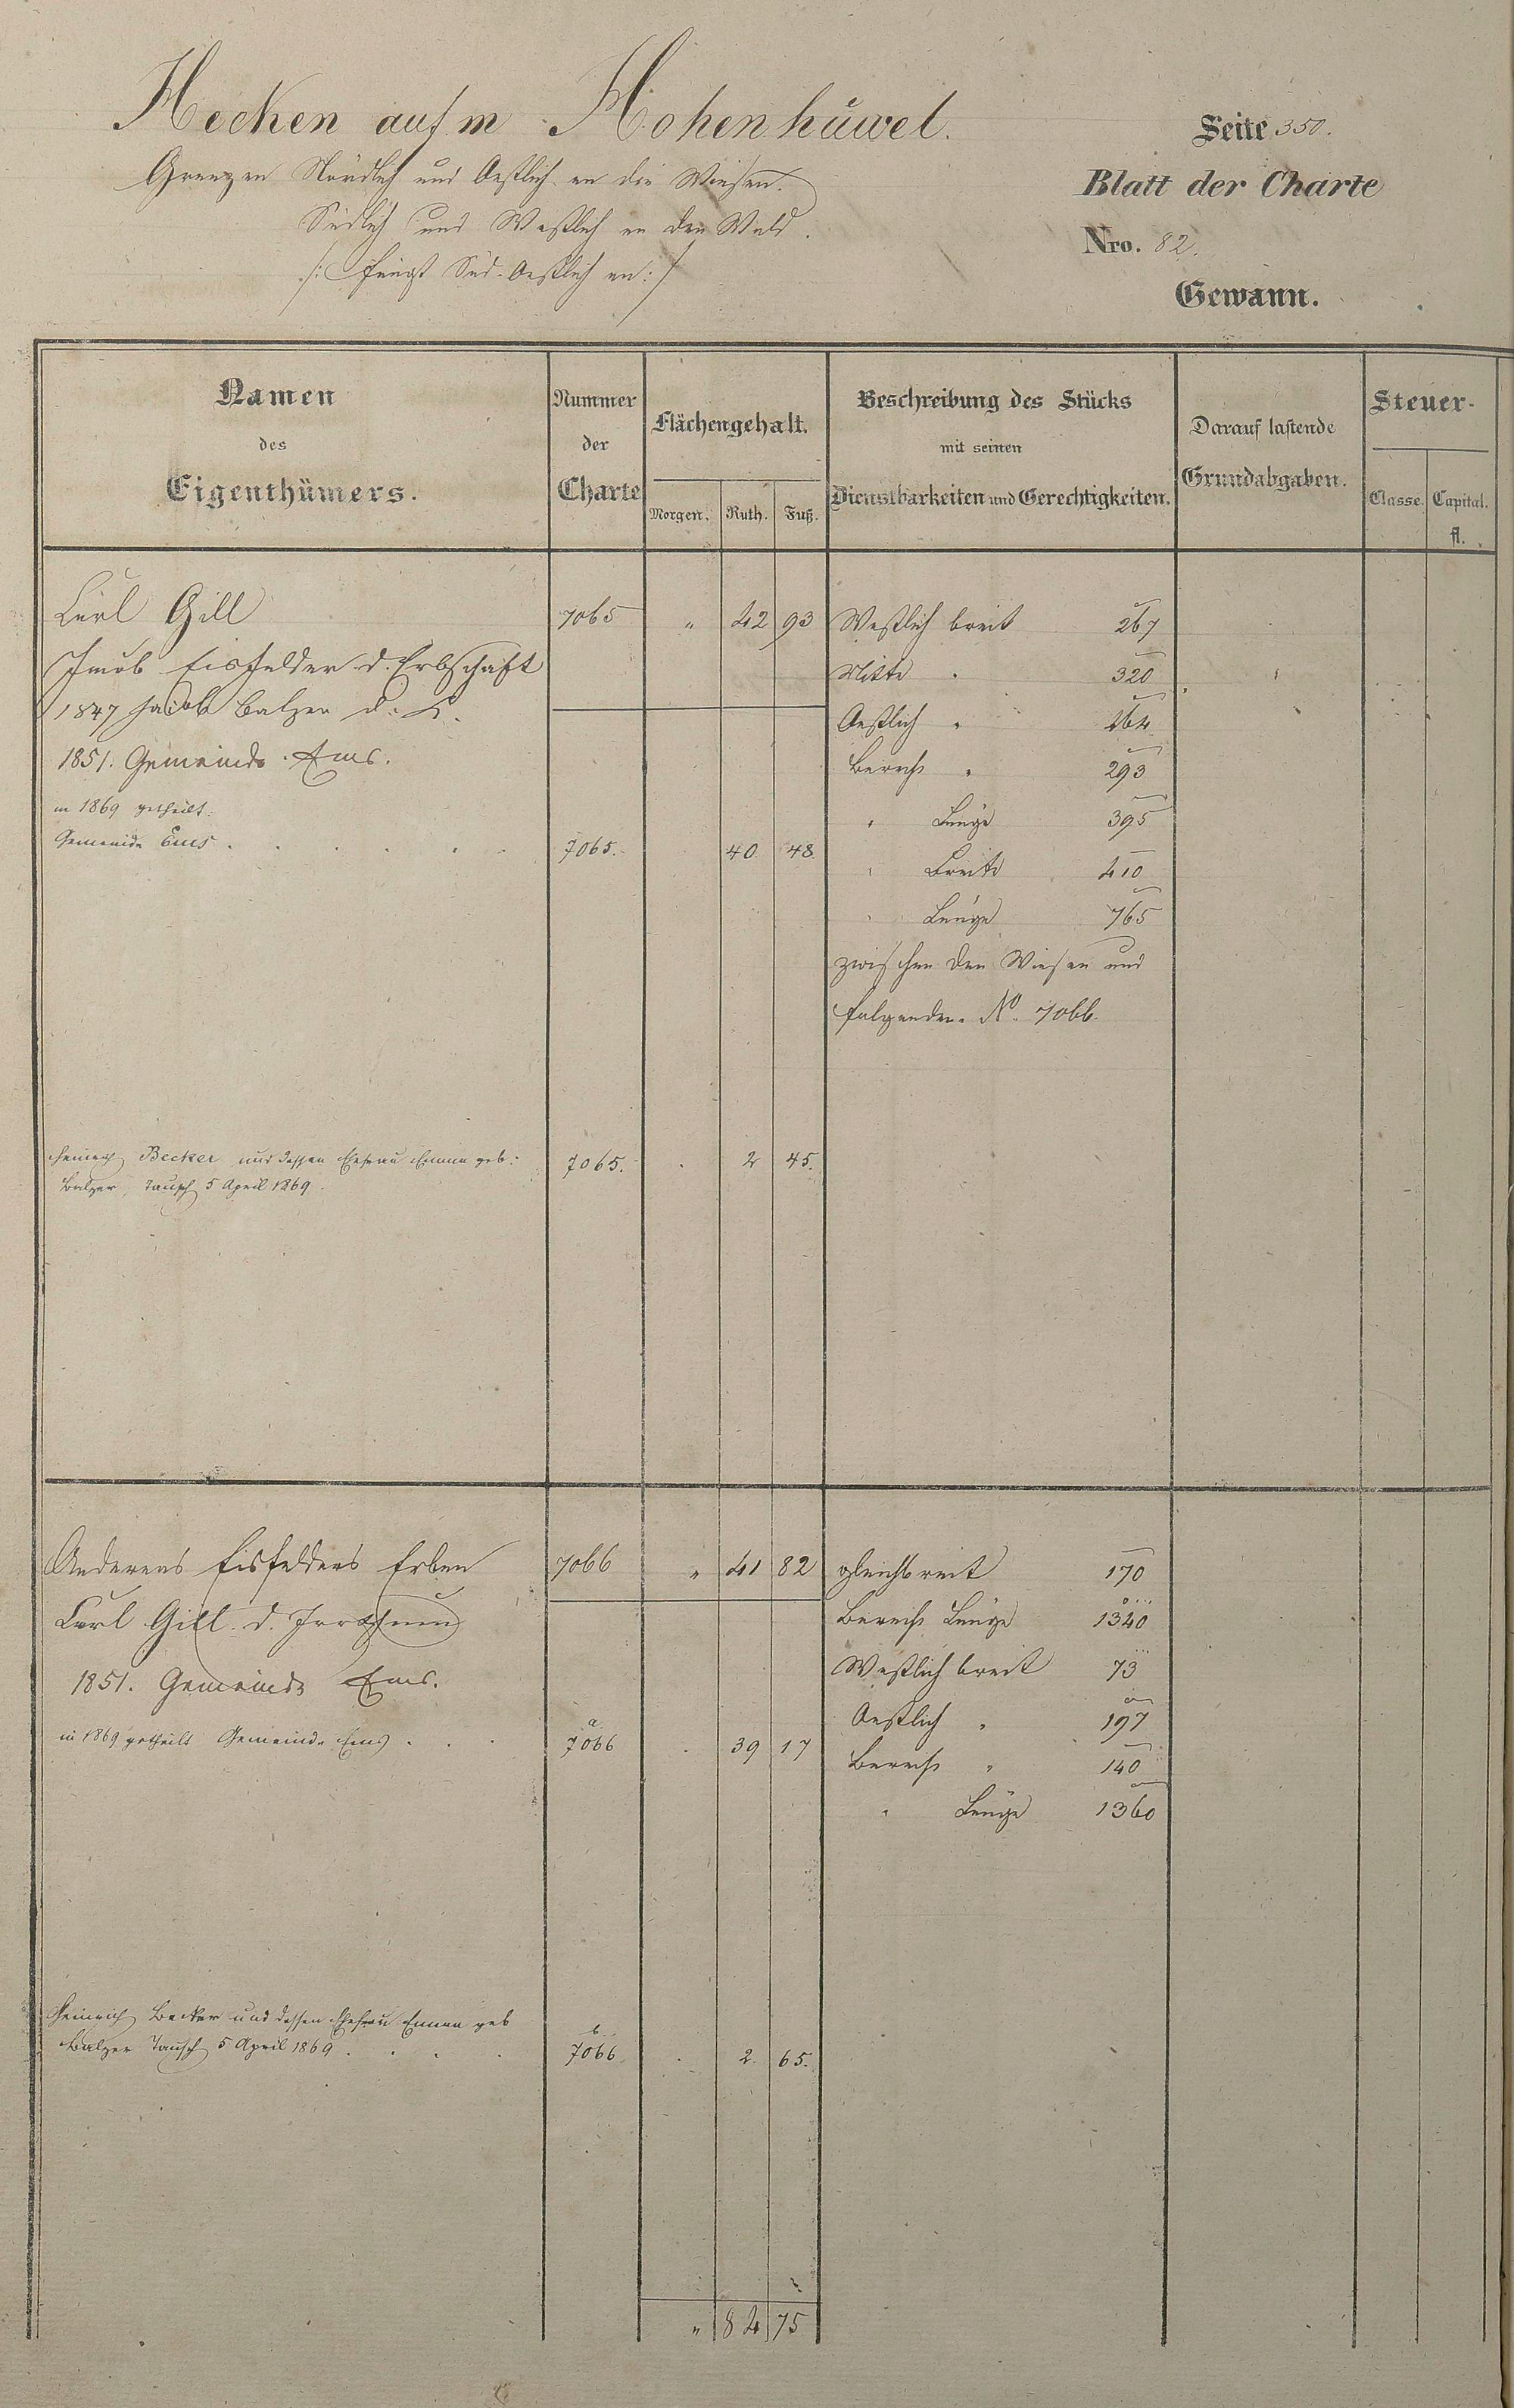 Hecken auf'm Hohenhüwel.
Seite 350.
Grenzen Nördlich und Oestlich an die Wiesen.
Blatt der Charte
Südlich und Westlich an den Wald.
Nro. 82.
/: fängt Süd-Oestlich an :/
Gewann.
Namen
des
Eigenthümers.
Nummer
der
Charte
Flächengehalt.
Morgen. Ruth. Fuß.
Beschreibung des Stücks
mit seinen
Dienstbarkeiten und Gerechtigkeiten.
Darauf lastende
Grundabgaben.
Steuer-
Classe. Capital.
fl.
Carl Gill 7065 " 42 93 Westlich breit 267
Jacob Eisfelder d. Erbschaft Mitte " 320
1847 Jacob Balzer d. Oestlich " 264
1851. Gemeinde Ems. Bereihs " 293
in 1869 getheilt: " Länge 395
Gemeinde Ems . . . . . 7065. 40 48 " Breite 410
" Länge 765
zwischen den Wiesen und
folgender No. 7066.
Heinrich Becker und dessen Ehefrau Emma geb: 7065. . 2 45.
Balzer, Tausch 5 April 1869.
Andereas Eisfelders Erben 7066 " 41 82 gleichbreit 170
Carl Gill d. Irrthum Bereihs Länge 1340
1851. Gemeinde Ems. Westlich breit 73
Oestlich " 197
in 1869 getheilt Gemeinde Ems . . . a 7066 . 39 17
Bereihs " 140
" Länge 1360
Heinrich Becker und dessen Ehefrau Emma geb
Balzer Tausch 5 April 1869 . . . . b 7066 . 2 65.
" 84 75